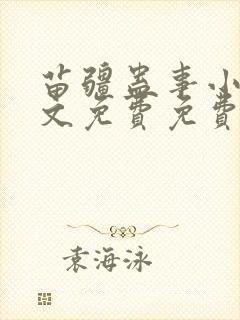 苗疆蛊事小
文免费免费
袁海泳